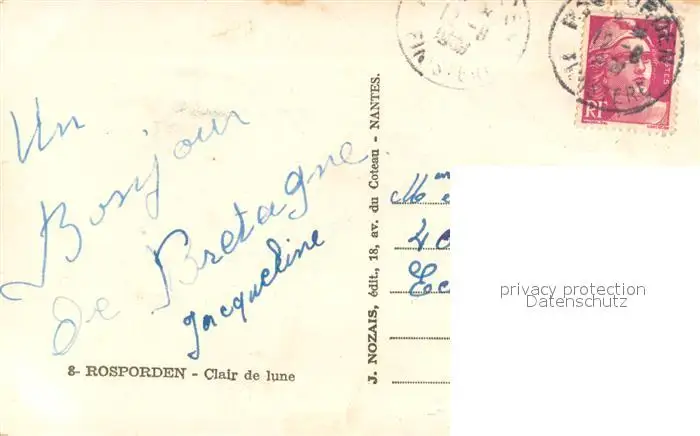 Un
Bonjour
de Bretagne
Jacqueline
8- ROSPORDEN - Clair de lune
J. NOZAIS, édit., 18, av. du Coteau - NANTES.
RF
privacy protection
Datenschutz